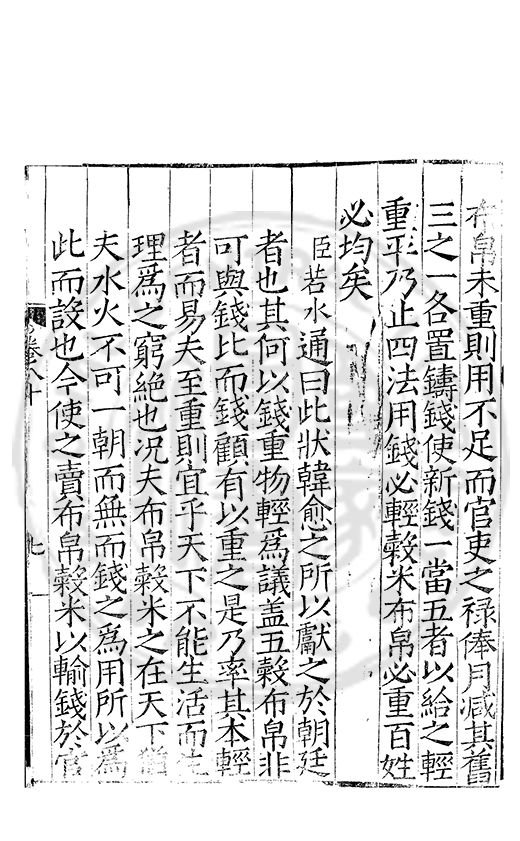 布帛未重則用不足而官吏之禄俸月减其舊
三之一各置鑄錢使新錢一當五者以給之輕
重平乃止四法用錢必輕糓米布帛必重百姓
必均矣
臣若水通曰此狀韓愈之所以獻之於朝廷
者也其何以錢重物輕爲議盖五糓布帛非
可與錢比而錢顧有以重之是乃率其本輕
者而易夫至重則宜乎天下不能生活而生
理爲之窮絶也况夫布帛糓米之在天下猶
夫水火不可一朝而無而錢之爲用所以爲
此而設也今使之賣布帛糓米以輸錢於官
卷八十
七